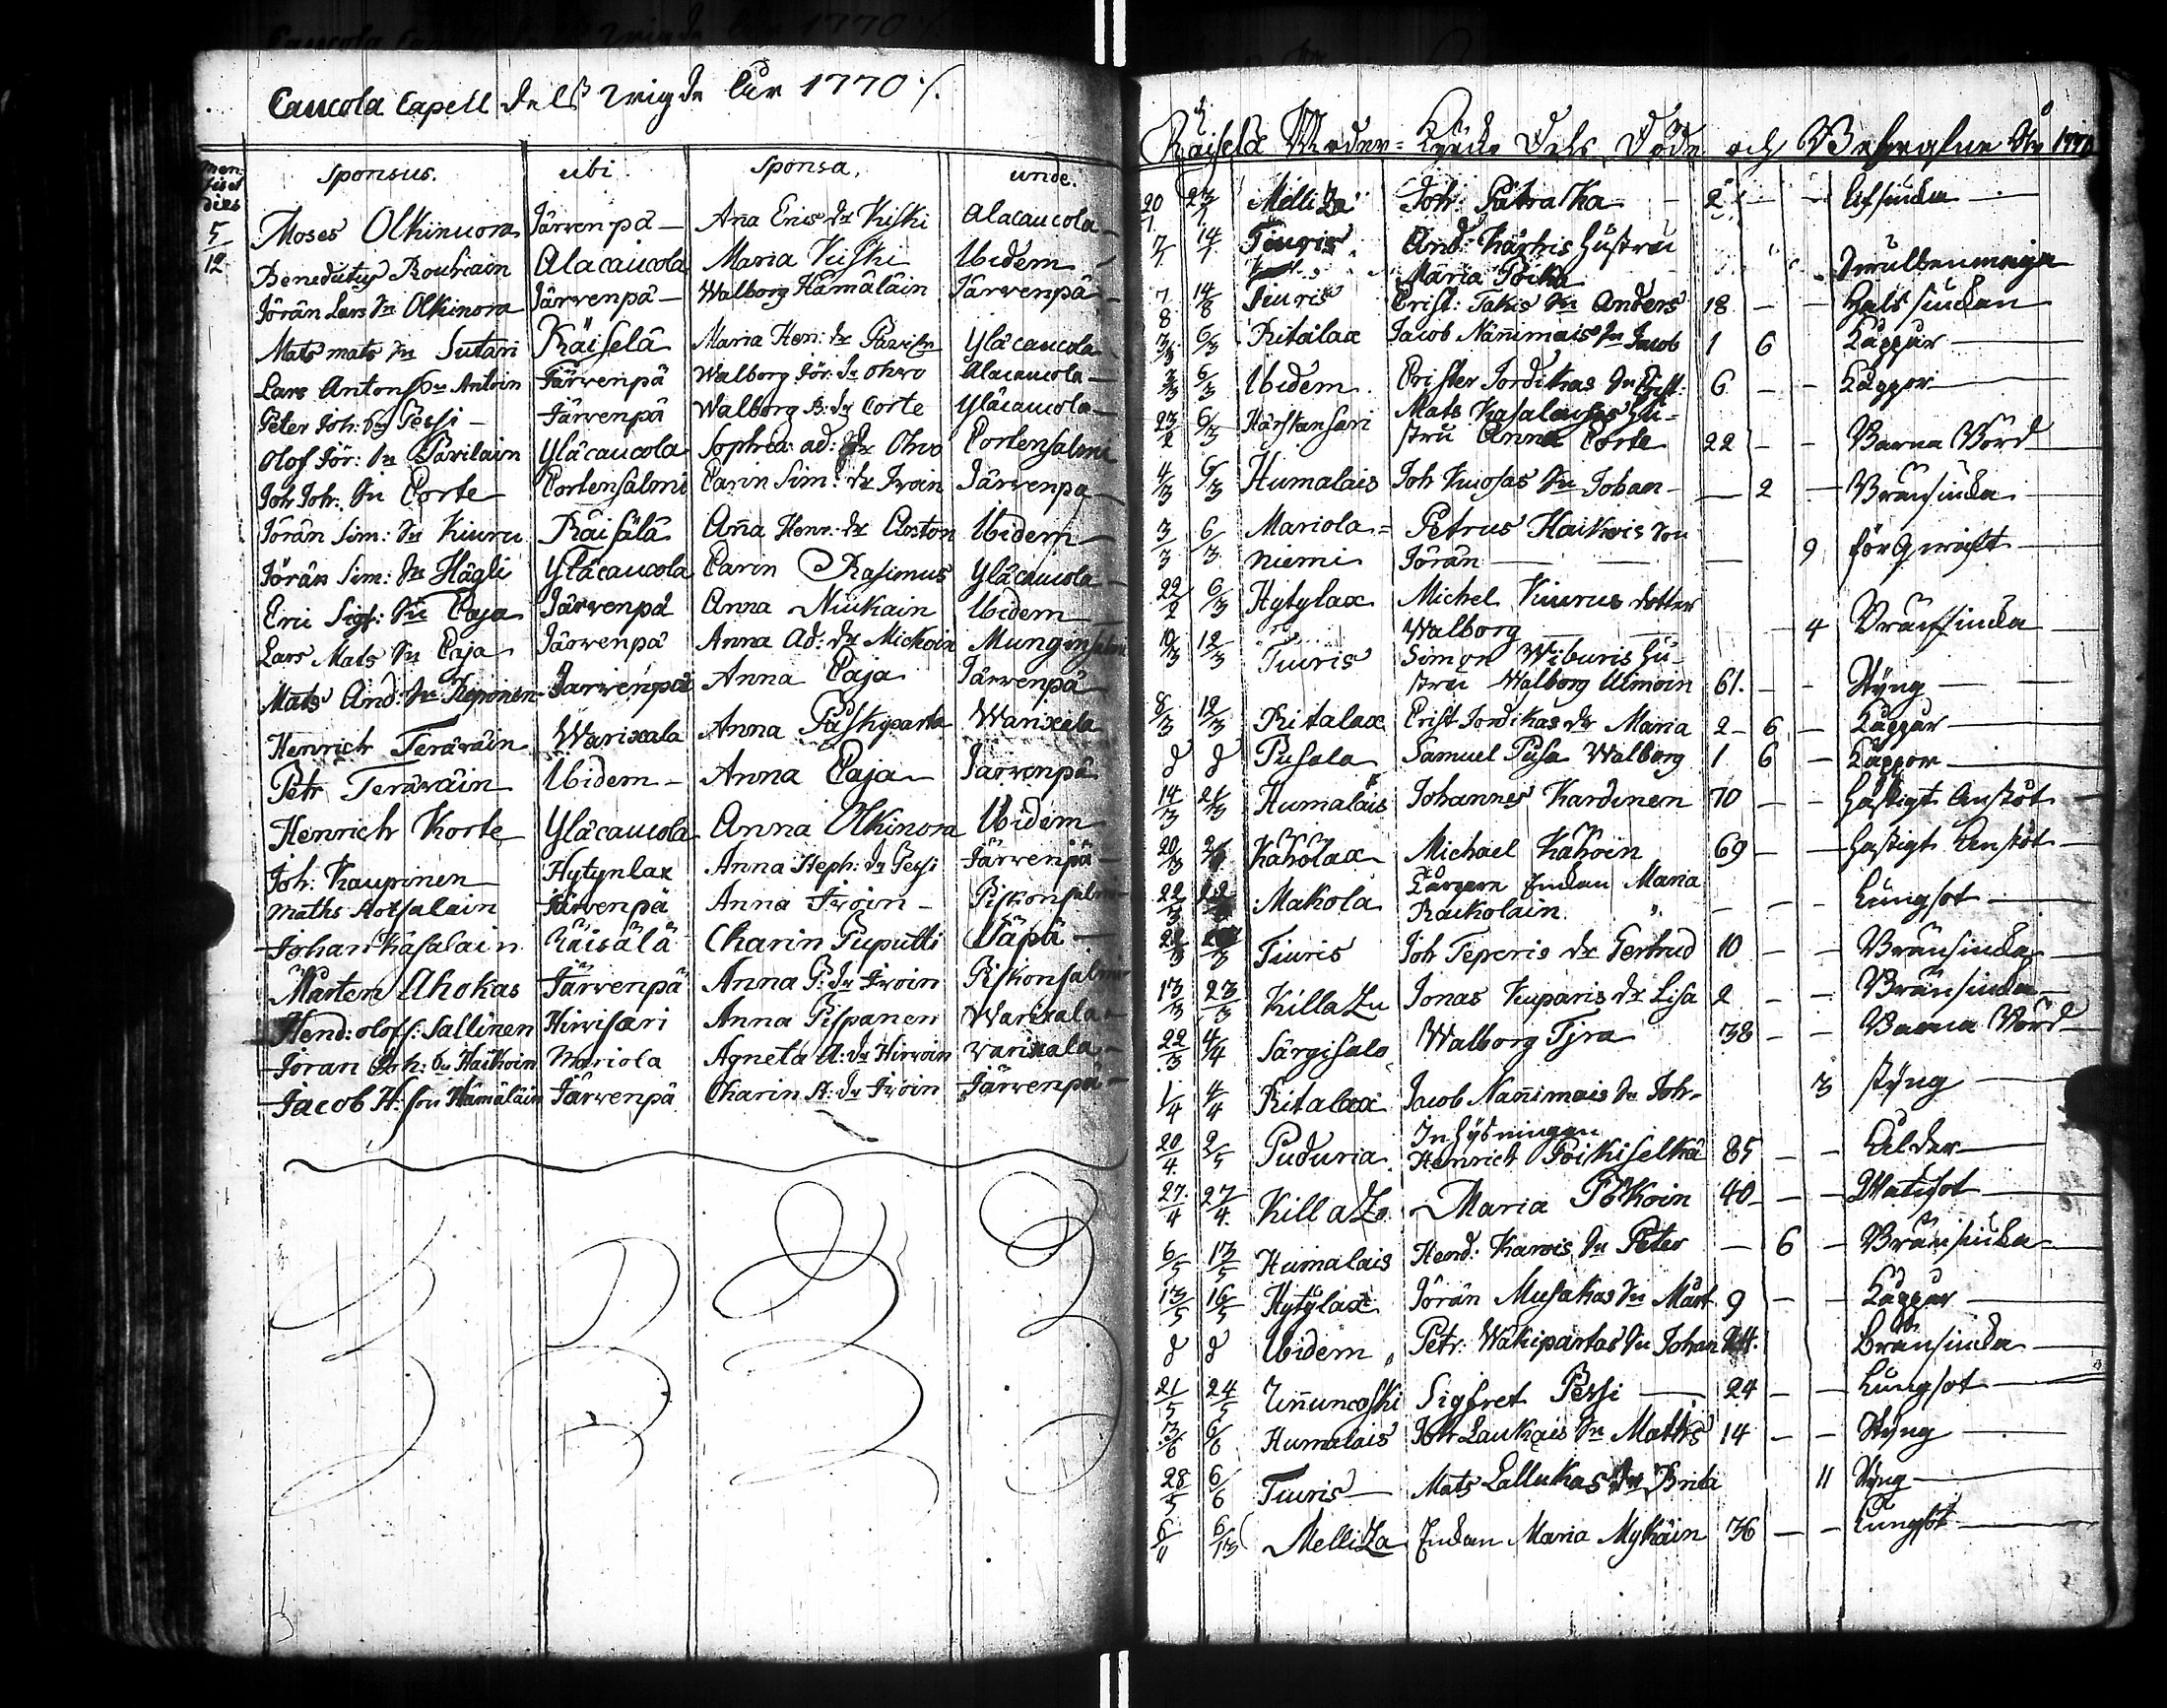 Caucola Capell dels wigde År 1770 ./.
mensis et dies sponsus. ubi sponsa. unde.
5/12 Moses Olkinuora Järvenpä — Ana Erics dr Kiski Alacaucola
Benedictus Rouhiain Alacaucola Maria Kiski Ibidem
Jörän Lars Sn Olkinora Järvenpä — Walborg Hämäläin Järvenpä
Mats mats Sn Sutari Räiselä Maria Hen: dr Yläcaucola
Lars Antons Sn Antoin Järvenpä Walborg Jör: dr Ohvo Alacaucola
Peter Joh: Sn Pessi — Järvenpä Walborg dr Corte Yläcaucola
Olof Jör: Sn Parilain Yläcaucola Sophia: ad: dr Ohvo Cortensalmi
Joh Joh: Sn Corte Cortensalmi Carin Sim: dr Ivoin Järvenpä
Jörän Sim: Sn Kiuru Räisälä Aña Henr: dr Ibidem
Jörän Sim: Sn Hägli Yläcaucola Carin Rasimus Yläcaucola
Eric Sigf: Sn Caja Järvenpä Anna Niukain Ibidem
Lars Mats Sn Caja Järvenpä Anna Ad: dr Mickoin
Mats And: Sn Reponen Järvenpä Anna Caja Järvenpä
Henrich Teräväin Warixala Anna Warixala
Petr Teräväin Ibidem — Anna Caja Järvenpä
Henrich Korte Yläcaucola Anna Olkinora Ibidem
Joh: Kaupinen Hytynlax Anna Steph: dr Pessi Järvenpä
Maths Hotsalain Järvenpä Anna Ivoin — Piskonsalmi
Johan Käsalain Räisälä Charin Puputti
Mårten Ahokas Järvenpä Anna P: dr Ivoin Piskonsalmi
Hend: olofs: Sallinen Hirvisari Anna Pispanen Warixala
Jöran Joh: Sn Haikoin Mariola Agneta A: dr Hirvoin Warixala
Jacob H: son Hämäläin Järvenpä Charin A: dr Ivoin Järvenpä
Räiselä Moder-Kyrcko Dels Döde och Begrafne År 1770
20/1 Mellitza Joh: Pätratka 2 — —
7/1 14/1 Tiuris And: Kärkis Hustru
Maria Poika
7/8 14/8 Tiuris Crist: Takis Sn Anders 18 — — Halssiukan
6/3 Ritalax Jacob Nañimais Sn Jacob 1 6 Kåppor
6/3 Ibidem Crister Jordikas Sn Crist: 6 — — Kåppor
23/2 6/3 Härskansari Mats Hu-
stru Anna Corte 22 — — Barna Börd
4/3 6/3 Humalais Joh Kuosas Sn Johan — — 2 — Bränsiuka
3/3 6/3 Mariola- Petrus Haikois Son
niemi Jörän — — 9
22/2 6/3 Hytylax Michel Kiurus dotter
Walborg — 4 Bränsiuka
10/3 12/3 Tiuris Simon Wiburis Hu-
stru Walborg Ulmoin 61. — — Styng
8/3 12/3 Ritalax Crist Jordikas dr Maria 2 — 6 — Kåppor
d d Pusala Samuel Pusa Walborg 1 6 — Kåppor
14/3 Humalais Johannes Kardinen 70 — — hastigt Anstöt
20/3 Kaholax Michael Kähöin 69 — — hastigt Anstöt
22/3 Makola Enkan Maria
Raikolain — — — Lungsot
Tiuris Joh Teperis dr Gertrud 10 — — Bränsiuka
13/3 23/3 Killatzu Jonas Kuparis dr Lisa 2 — — Bränsiuka
22/3 4/4 Särgisalo Walborg Tjra 38 — — Barna Börd
1/4 4/4 Ritalax Jacob Nañimais Sn Joh — 3 styng
20/4 2/5 Puduria Inhysningen
Henrich Poikiselkä 85 — — Ålder
27/4 27/4 Killatzo Maria Pökoin 40 — — Watusot
6/5 13/5 Humalais Hend: Karvis Sn Peter — 6 — Bränsiuka
13/5 16/5 Hytylax Jörän Musakas Sn Mårt 9 — — Kåppor
d d Ibidem Petr: Wäkipartas Sn Johan Bränsiuka
21/5 24/5 Uñunkoski Sigfret Pessi — 24 — — Lungsot
6/6 Humalais Joh Laukais Sn Maths 14 — — Styng
28/5 6/6 Tiuris — Mats Lallukas dr Brita 11 Styng
Mellitza Enkan Maria Mykäin 36 — — Lungsot